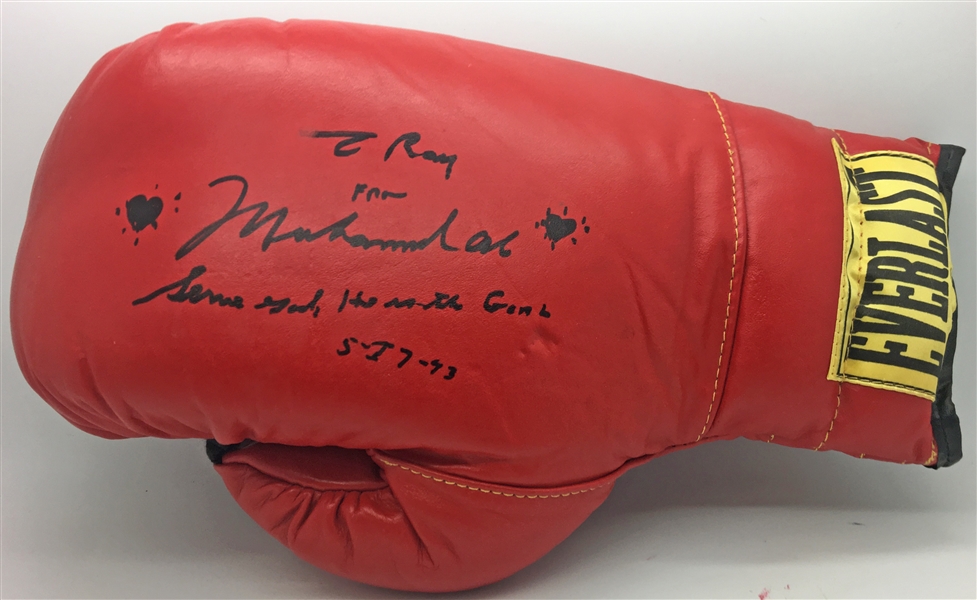 To Ray
From
Muhammad Ali
Serve God, He is the Goal
5-17-93
EVERLAST